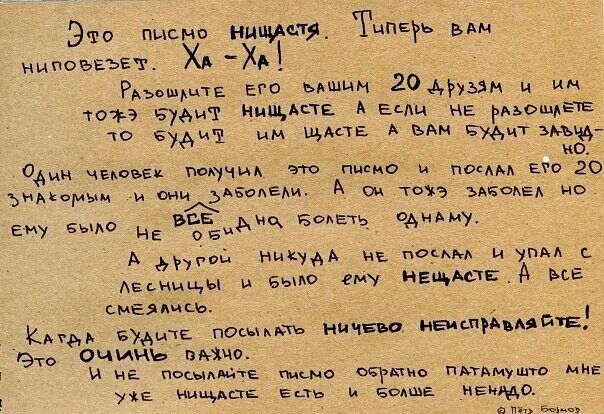 Это писмо нищастя. Типерь вам
ниповезет. Ха-Ха!
Разошлите его вашим 20 друзям и им
тожэ будит нищасте а если не разошлёте
то будит им щасте а вам будит завид-
но.
Один человек получил это писмо и послал его 20
знакомым и они все заболели. А он тожэ заболел но
ему было не обидна болеть однаму.
А другой никуда не послал и упал с
лесницы и было ему нещасте. А все
смеялись.
Кагда будите посылать ничево неисправляйте!
Это очинь важно.
И не посылайте писмо обратно патамушто мне
уже нищасте есть и болше ненадо.
© Пётр Бормор